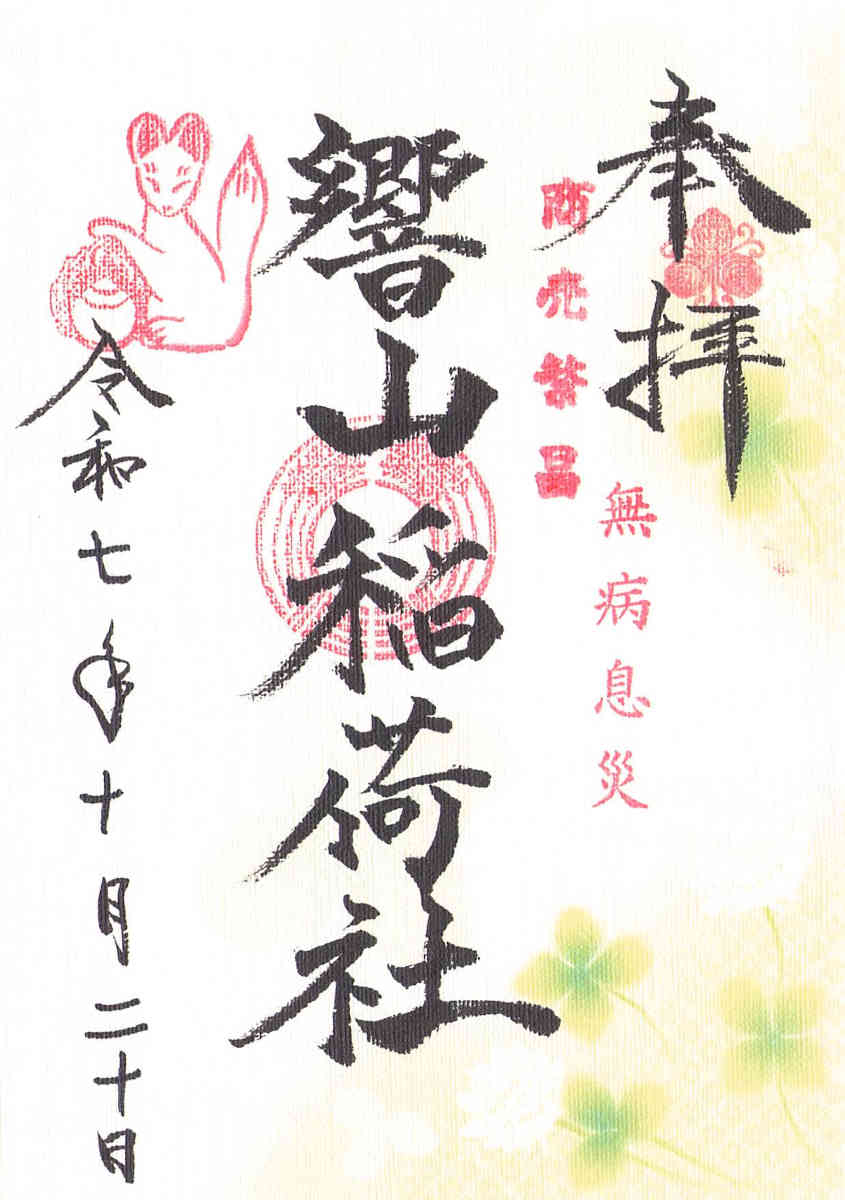 奉拝
無病息災
商売繁昌
響山稲荷社
令和七年十月二十日